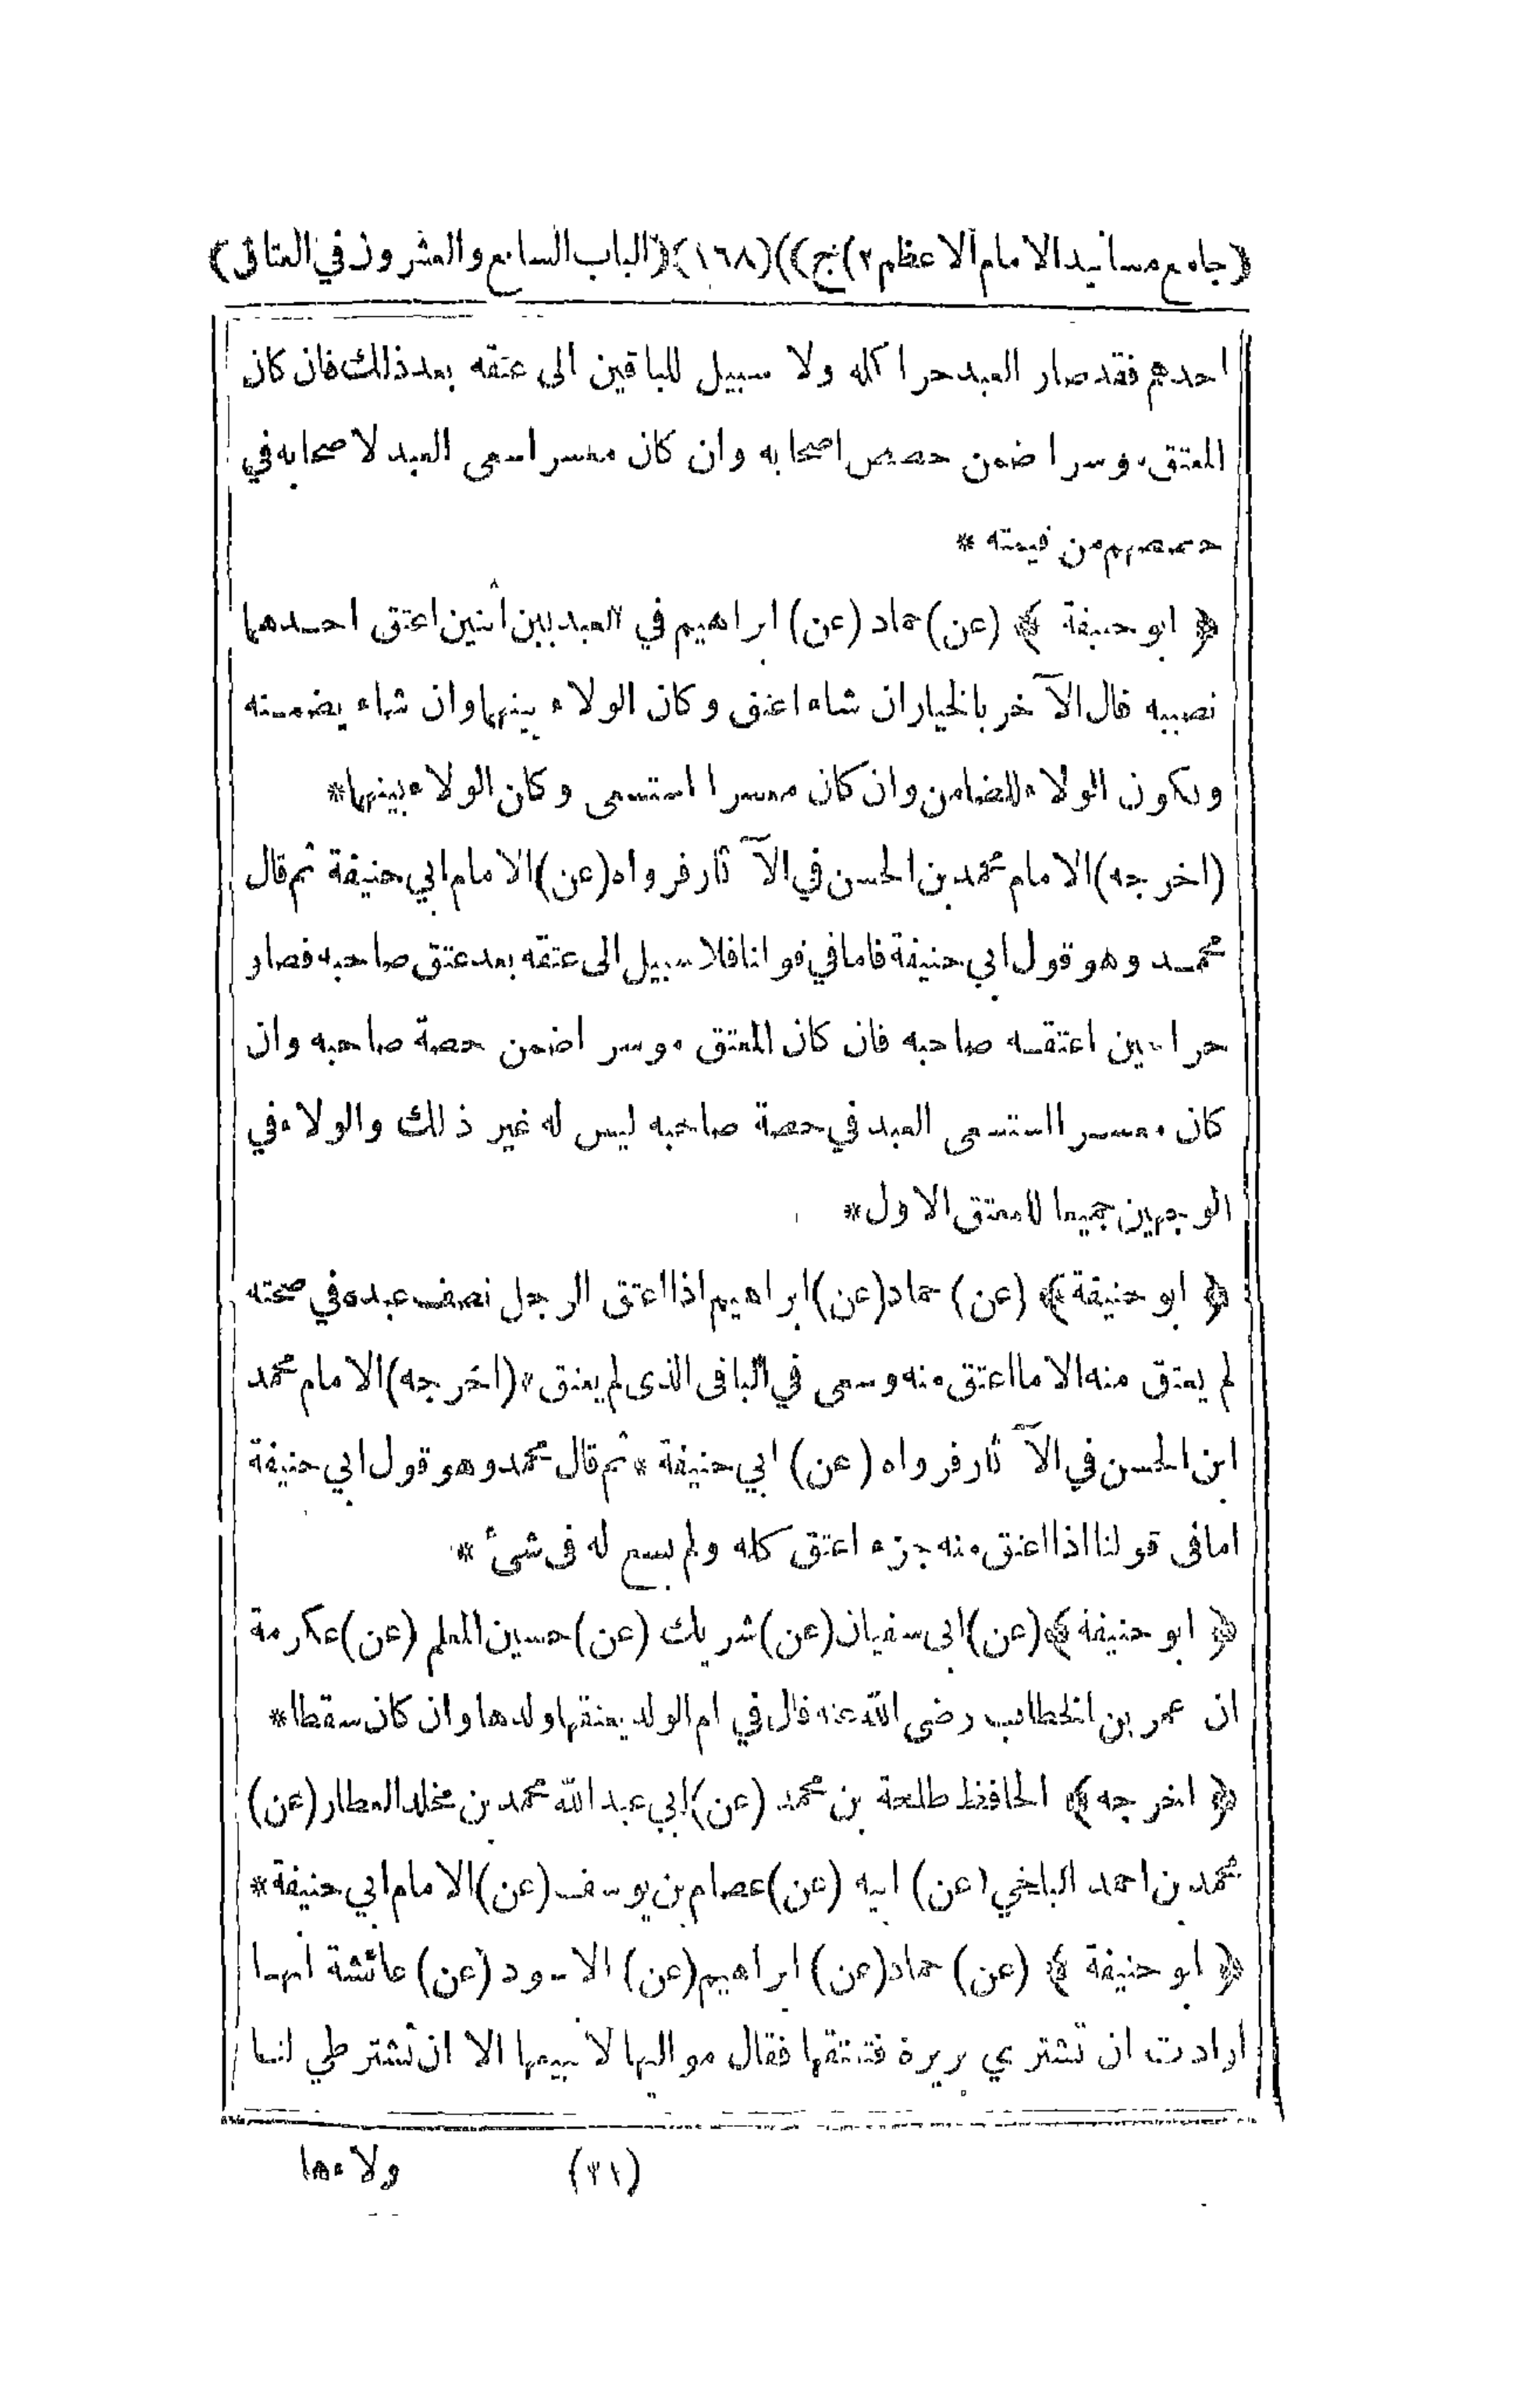 (جامع مسانيد الامام الاعظم ٢) (ج) (١٦٨) (الباب السابع والعشرون في العتاق)
احدهم فقد صار العبد حرا كله ولا سبيل للباقين الى عتقه بعد ذلك فان كان
المعتق موسرا ضمن حصص اصحابه وان كان معسرا سعى العبد لاصحابه في
حصصهم من قيمته *
﴿ ابو حنيفة ﴾ (عن) حماد (عن) ابراهيم في العبد بين اثنين اعتق احدهما
نصيبه قال الآخر بالخيار ان شاء اعتق وكان الولاء بينهما وان شاء يضمنه
ويكون الولاء للضامن وان كان معسرا استسعى وكان الولاء بينهما *
(اخرجه) الامام محمد بن الحسن في الآثار فرواه (عن) الامام ابي حنيفة ثم قال
محمد وهو قول ابي حنيفة فاما في قولنا فلا سبيل الى عتقه بعد عتق صاحبه فصار
حرا حين اعتقه صاحبه فان كان المعتق موسرا ضمن حصة صاحبه وان
كان معسرا استسعى العبد في حصة صاحبه ليس له غير ذلك والولاء في
الوجهين جميعا للمعتق الاول *
﴿ ابو حنيفة ﴾ (عن) حماد (عن) ابراهيم اذا اعتق الرجل نصف عبده في صحته
لم يعتق منه الا ما اعتق منه وسعى في الباقى الذى لم يعتق * (اخرجه) الامام محمد
ابن الحسن في الآثار فرواه (عن) ابي حنيفة * ثم قال محمد وهو قول ابي حنيفة
اما فى قولنا اذا اعتق منه جزء اعتق كله ولم يسع له فى شىٔ *
﴿ ابو حنيفة ﴾ (عن) ابى سفيان (عن) شريك (عن) حسين المعلم (عن) عكرمة
ان عمر بن الخطاب رضى الله عنه قال في ام الولد يعتقها ولدها وان كان سقطا *
﴿ اخرجه ﴾ الحافظ طلحة بن محمد (عن) ابي عبد الله محمد بن مخلد العطار (عن)
محمد بن احمد البلخي (عن) ابيه (عن) عصام بن يوسف (عن) الامام ابي حنيفة *
﴿ ابو حنيفة ﴾ (عن) حماد (عن) ابراهيم (عن) الاسود (عن) عائشة انها
ارادت ان تشتري بريرة فتعتقها فقال مواليها لا نبيعها الا ان تشترطي لنا
(٢١) ولاءها